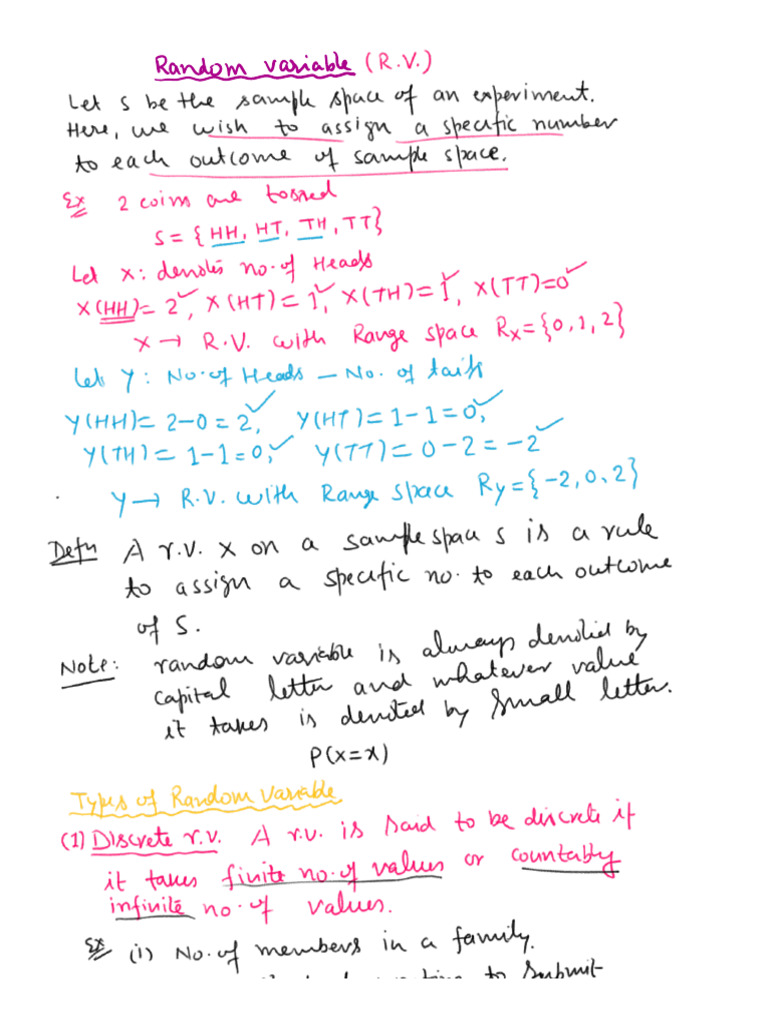 Random variable (R.V.)
Let S be the sample space of an experiment.
Here, we wish to assign a specific number
to each outcome of sample space.
Ex 2 coins are tossed
S = { HH, HT, TH, TT}
Let X : denotes no. of Heads
X(HH) = 2, X(HT) = 1, X(TH) = 1, X(TT) = 0
X → R.V. with Range space Rx = {0, 1, 2}
Let Y : No. of Heads – No. of tails
Y(HH) = 2-0 = 2, Y(HT) = 1-1 = 0,
Y(TH) = 1-1 = 0, Y(TT) = 0-2 = -2
Y → R.V. with Range space Ry = {-2, 0, 2}
Defn A r.v. X on a sample space S is a rule
to assign a specific no. to each outcome
of S.
Note: random variable is always denoted by
capital letter and whatever value
it takes is denoted by small letter.
P(X=x)
Types of Random Variable
(1) Discrete r.v. A r.v. is said to be discrete if
it takes finite no. of values or countably
infinite no. of values.
Ex (i) No. of members in a family.
to submit